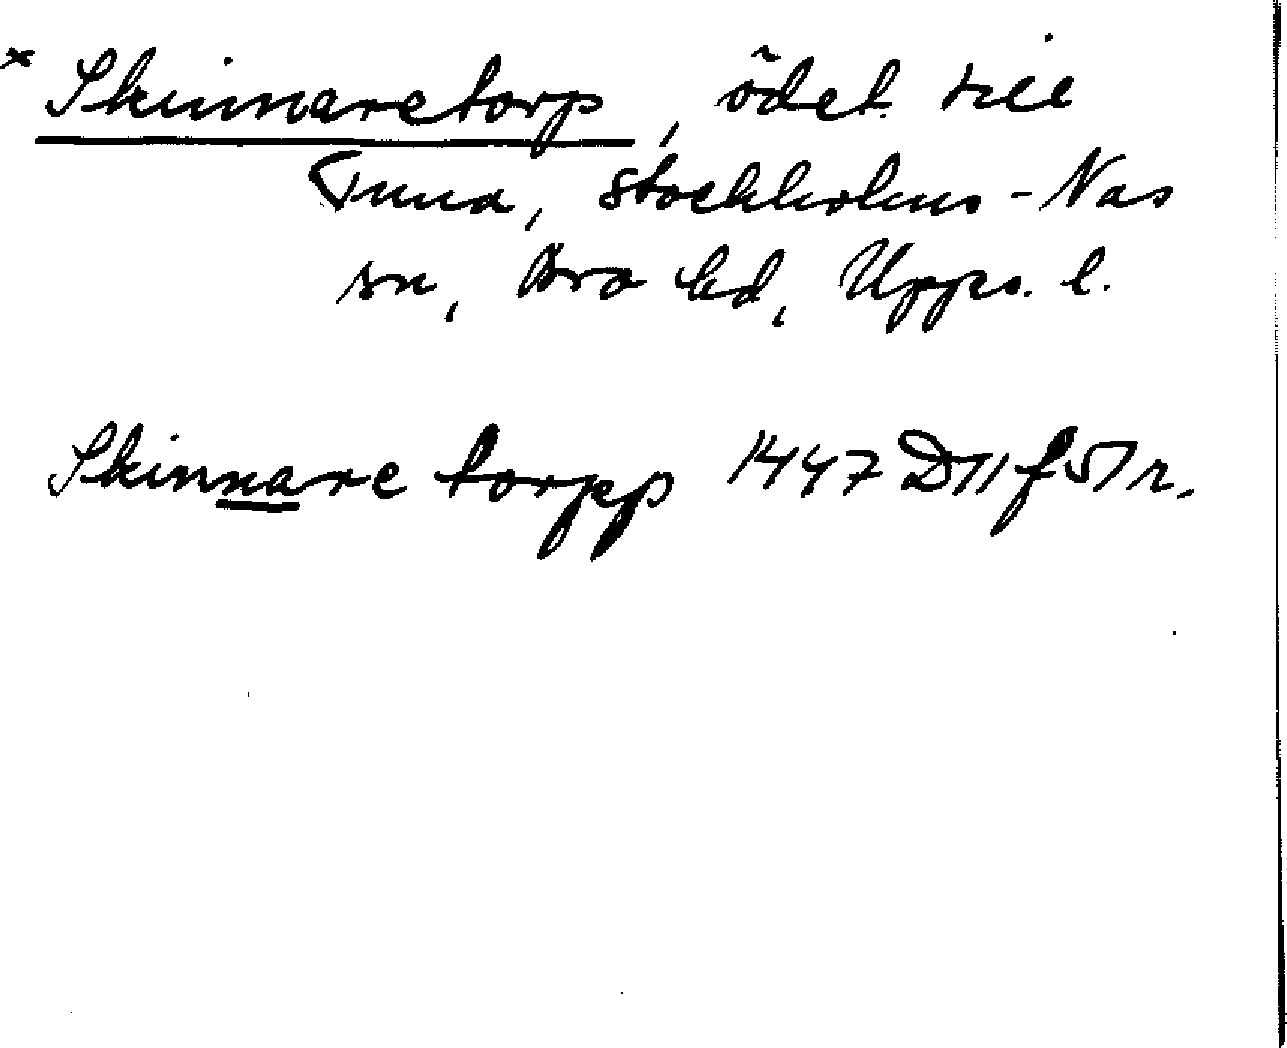 × Skinnaretorp, ödet. till
Tuna, Stockholms-Näs
sn, Bro hd, Upps. l.
Skinnare torpp 1447 D11 f 51 r.